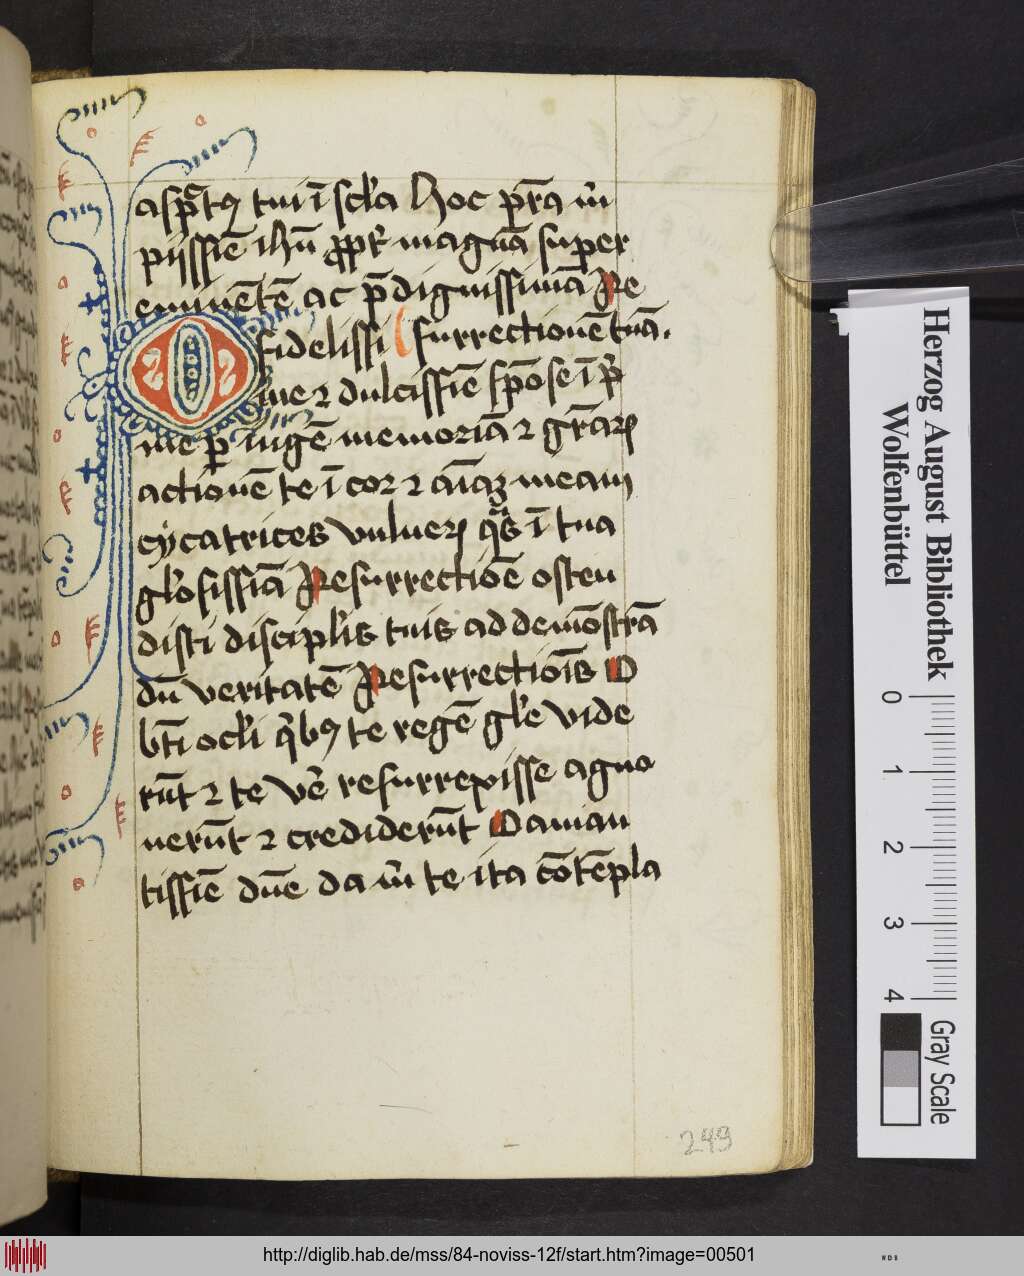 asp̄ctꝰ tui ī scl̓a Hoc pr̄a m̓
pijssiē ihū ꝓpt̓ magnā super
eminētē ac p̄dignissimā Re
O fidelissi surrectionē tuā.
me ⁊ dulcissīe spōse īp̓
me ꝑ iugē memoriā ⁊ gr̄aꝝ
actionē te ī cor ⁊ aīaꝫ meam
cycatrices vulneꝝ qͣs ī tua
gl̓osissīa Resurrectiōe osten
disti discipl̓is tuis ad demōstrā
dū veritatē Resurrectiōis O
bt̄i ocl̓i q̓bꝰ te regē gl̓e vide
rūt ⁊ te ve̓ resurrexisse agno
uerūt ⁊ crediderūt O aman
tissīe dn̄e da m̓ te ita cōtēpla
249
Herzog August Bibliothek
Wolfenbüttel
0 1 2 3 4
Gray Scale
http://diglib.hab.de/mss/84-noviss-12f/start.htm?image=00501